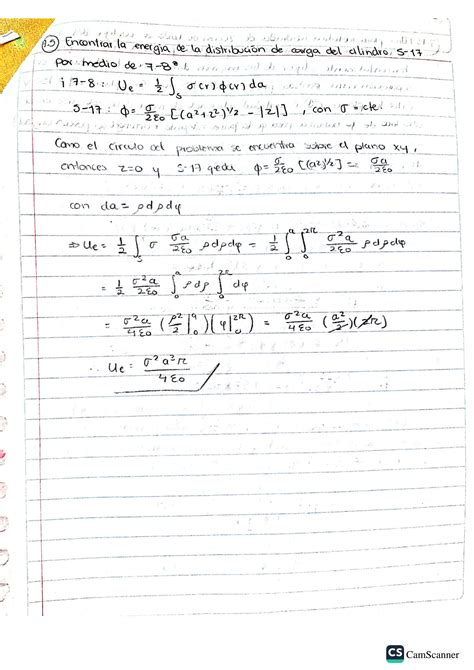 1.5) Encontrar la energía de la distribución de carga del cilindro 5-17
por medio de 7-8.
i 7-8: Ue = 1/2 ∫s σ(r) φ(r) da
5-17: φ = σ/2ε0 [(a²+z²)^1/2 - |z|], con σ = cte.
Como el circulo del problema se encuentra sobre el plano xy,
entonces z=0 y 5-17 queda φ = σ/2ε0 [(a²)^1/2] = σa/2ε0
con da = ρdρdφ
⇒ Ue = 1/2 ∫s σ σa/2ε0 ρdρdφ = 1/2 ∫0^a ∫0^2π σ²a/2ε0 ρdρdφ
= 1/2 σ²a/2ε0 ∫0^a ρdρ ∫0^2π dφ
= σ²a/4ε0 (ρ²/2 |0^a)(φ|0^2π) = σ²a/4ε0 (a²/2)(2π)
Ue = σ²a³π/4ε0
CS CamScanner